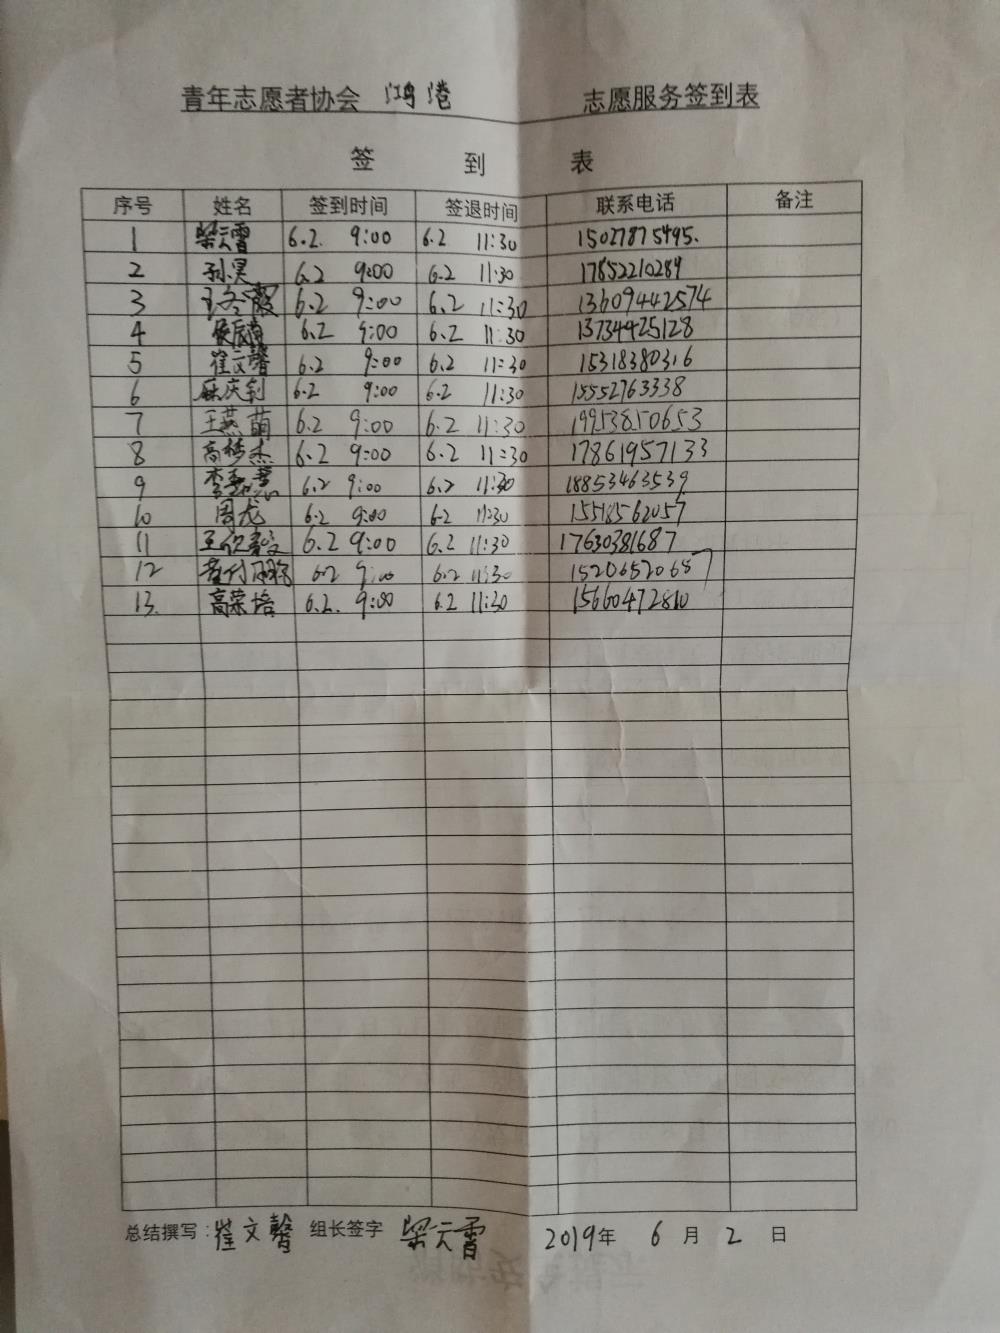 青年志愿者协会 鸿港 志愿服务签到表
签 到 表
序号 姓名 签到时间 签退时间 联系电话 备注
1 梁云霄 6.2. 9:00 6.2 11:30 15027875495.
2 孙昊 6.2 9:00 6.2 11:30 17852210289
3 王冬霞 6.2 9:00 6.2 11:30 13609442574
4 6.2 9:00 6.2 11:30 13734425128
5 崔文馨 6.2 9:00 6.2 11:30 15318380316
6 麻庆钊 6.2 9:00 6.2 11:30 15552763338
7 王燕萌 6.2 9:00 6.2 11:30 19953850653
8 高梦杰 6.2 9:00 6.2 11:30 17861957133
9 6.2 9:00 6.2 11:30 18853463539
10 周龙 6.2 9:00 6.2 11:30 15518562057
11 6.2 9:00 6.2 11:30 17630381687
12 6.2 9:00 6.2 11:30 15206520687
13. 高荣培 6.2. 9:00 6.2 11:30 15660472810
总结撰写：崔文馨 组长签字 梁云霄 2019年 6 月 2 日